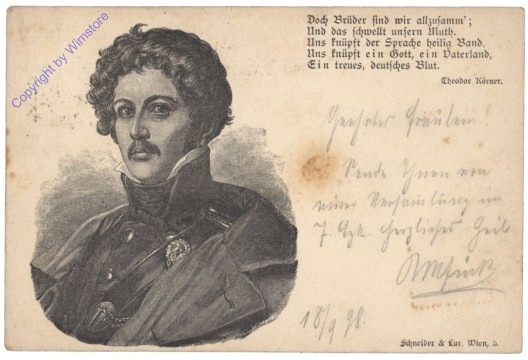 Copyright by Wimstore
Doch Brüder sind wir allzusamm';
Und das schwellt unsern Muth.
Uns knüpft der Sprache heilig Band.
Uns knüpft ein Gott, ein Vaterland,
Ein treues, deutsches Blut.
Theodor Körner.
Geehrtes Fräulein!
Sende Ihnen von
einer Versammlung im
7 herzliches Heil
18/9 98.
Schneider & Lux, Wien,